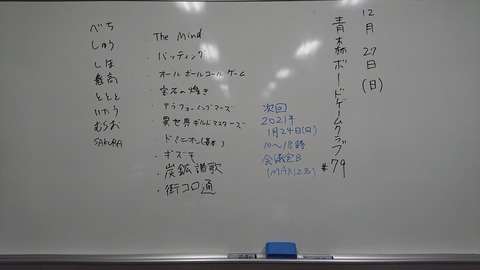 12月27日(日)
青森ボードゲームクラブ #79
べち
しゅう
しほ
最高
ととと
いたろう
むらお
SAKURA
The Mind
・バッティング
・オールポールコールゲーム
・宝石の煌き
・テラフォーミングマーズ
・異世界ギルドマスターズ
・ドミニオン(基本)
・ギズモ
・炭鉱讃歌
・街コロ通
次回
2021年
1月24日(日)
10〜18時
会議室B
(MAX12名)